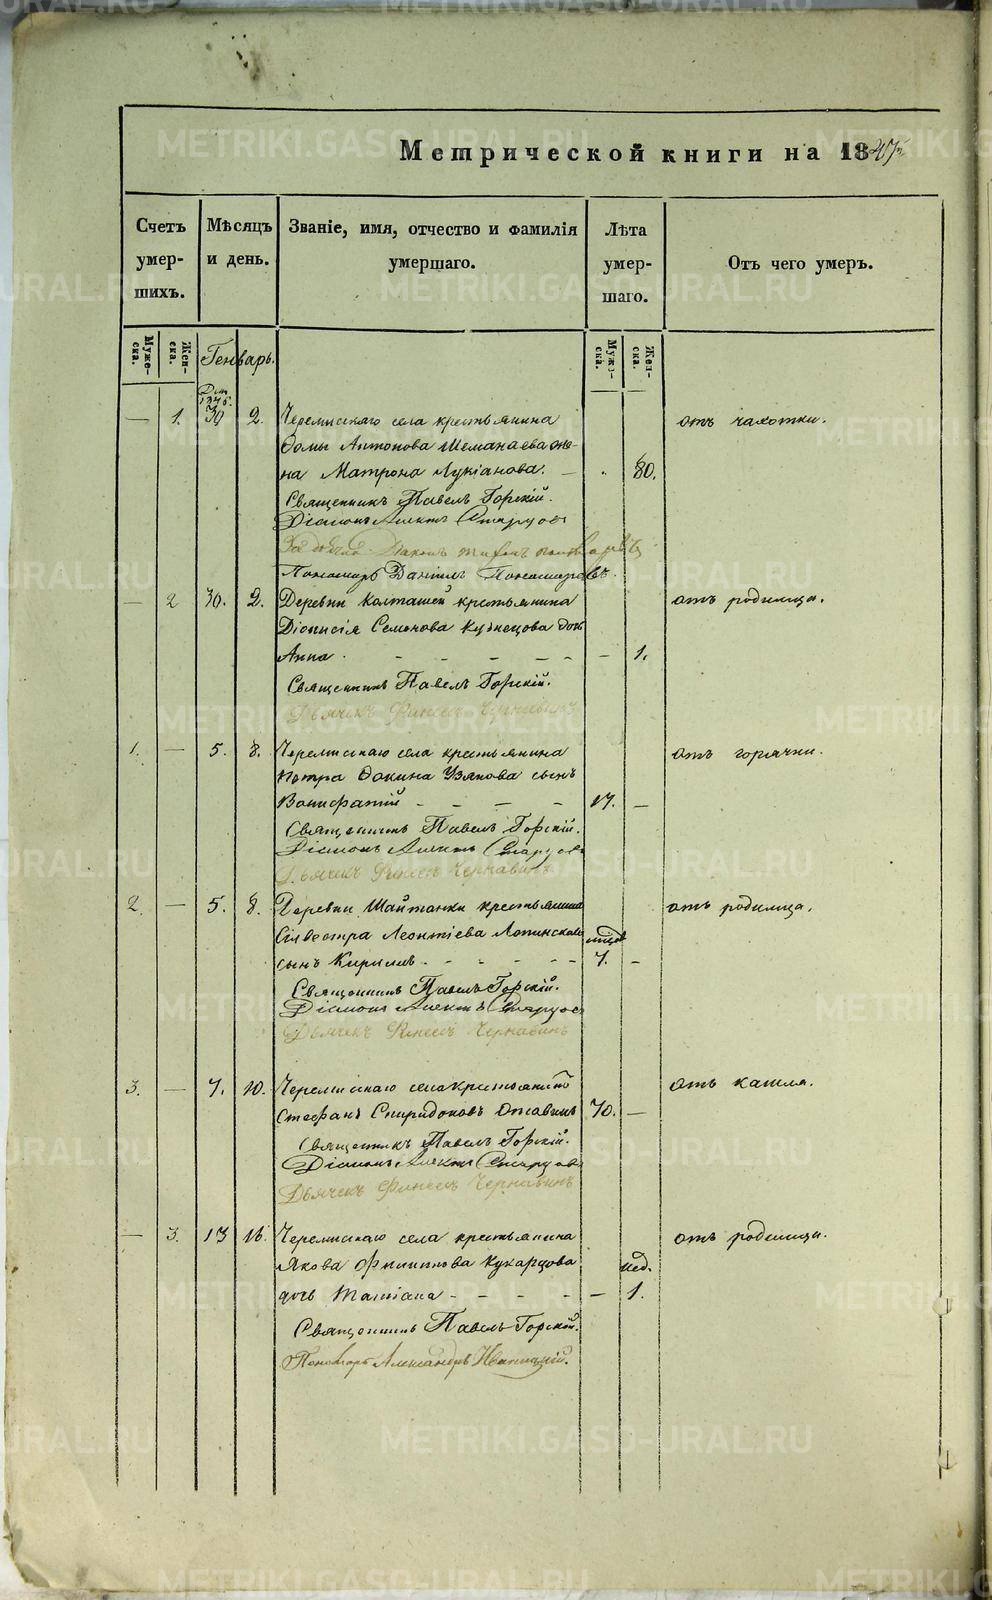 Метрической книги на 1847
Счетъ умер-шихъ.
Мѣсяцъ и день.
Званіе, имя, отчество и фамилія умершаго.
Лѣта умер-шаго.
Отъ чего умеръ.
Муже-ска. Жен-ска. Генварь. Муже-ска. Жен-ска.
— 1. 30 2. Черемискаго села крестьянина отъ чахотки.
Фомы Антонова Шеманаева же-
на Матрона Лукіанова. — 80.
Священникъ Павелъ Горскій.
Діаконъ
Пономарь Даніилъ Пономаревъ.
— 2 30. 2. Деревни Колташей крестьянина отъ родимца.
Діонисія Семенова Кузнецова дочь
Анна — 1.
Священникъ Павелъ Горскій.
Дьячекъ Финеесъ Чернавинъ
1. — 5. 8. Черемискаго села крестьянина отъ горячки.
Петра Фокина Узянова сынъ
Вонифатій 17. —
Священникъ Павелъ Горскій.
Діаконъ
Дьячекъ Финеесъ Чернавинъ
2. — 5. 8. Деревни Шайтанки крестьянина отъ родимца.
Сильвестра Леонтіева
сынъ Кириллъ 7. —
Священникъ Павелъ Горскій.
Діаконъ
Дьячекъ Финеесъ Чернавинъ
3. — 7. 10. Черемискаго села крестьянинъ отъ кашля.
Стефанъ Спиридоновъ 70. —
Священникъ Павелъ Горскій.
Діаконъ
Дьячекъ Финеесъ Чернавинъ
— 3. 13 16. Черемискаго села крестьянина отъ родимца.
Якова Филиппова Кукарцова нед.
дочь Татіана — 1.
Священникъ Павелъ Горскій.
Пономарь Александръ
METRIKI.GASO-URAL.RU